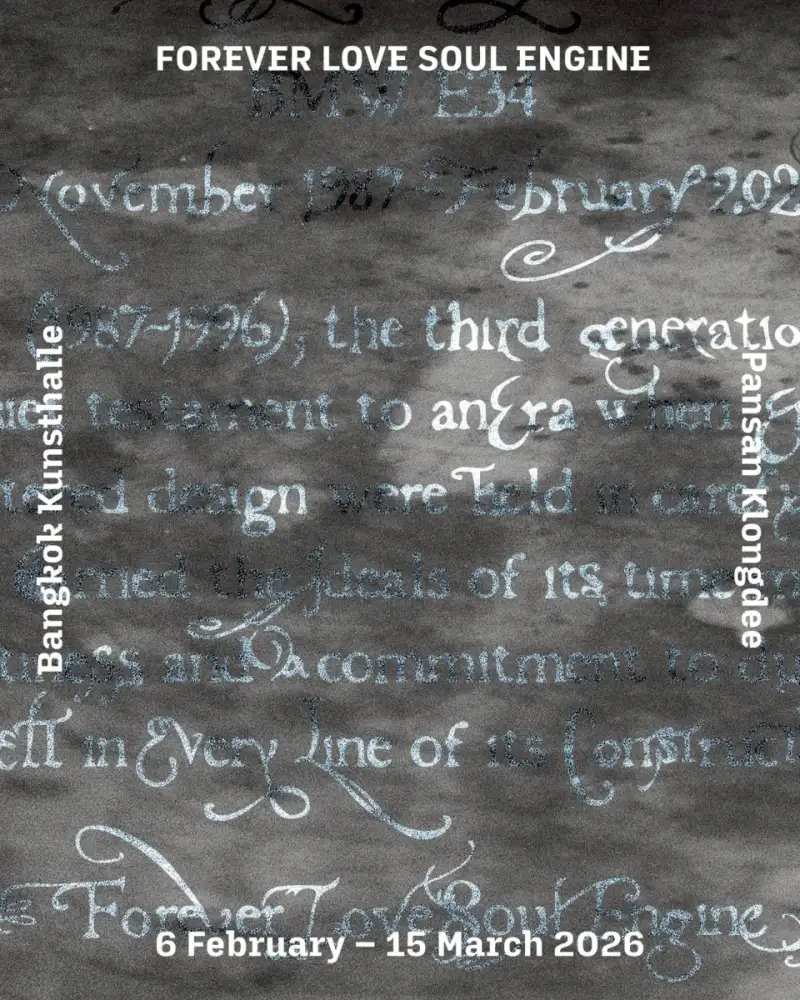 FOREVER LOVE SOUL ENGINE
BMW E34
November 1987 - February 202
(1987-1996), the third generatio
testament to an Era when
design were held in
the ideals of its time
and a commitment to
in Every Line of its Construct
Forever Love Soul Engine
Bangkok Kunsthalle
Pansan Klongdee
6 February – 15 March 2026